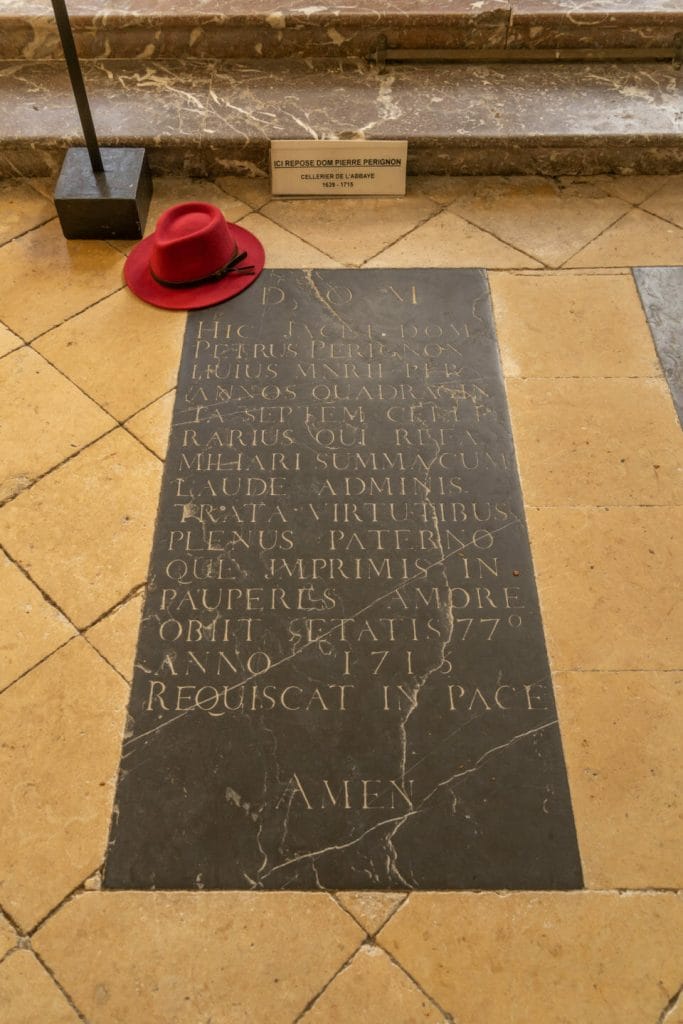 ICI REPOSE DOM PIERRE PERIGNON
CELLERIER DE L'ABBAYE
1639 - 1715
D, O M
HIC JACET DOM
PETRUS PERIGNON
HUIUS MNRII PER
ANNOS QUADRAGIN
TA SEPTEM CELLE
RARIUS QUI RE FA
MILIARI SUMMA CUM
LAUDE ADMINIS
TRATA VIRTUTIBUS
PLENUS PATERNO
QUE IMPRIMIS IN
PAUPERES AMORE
OBIIT ÆTATIS 77°
ANNO 1715
REQUISCAT IN PACE
AMEN